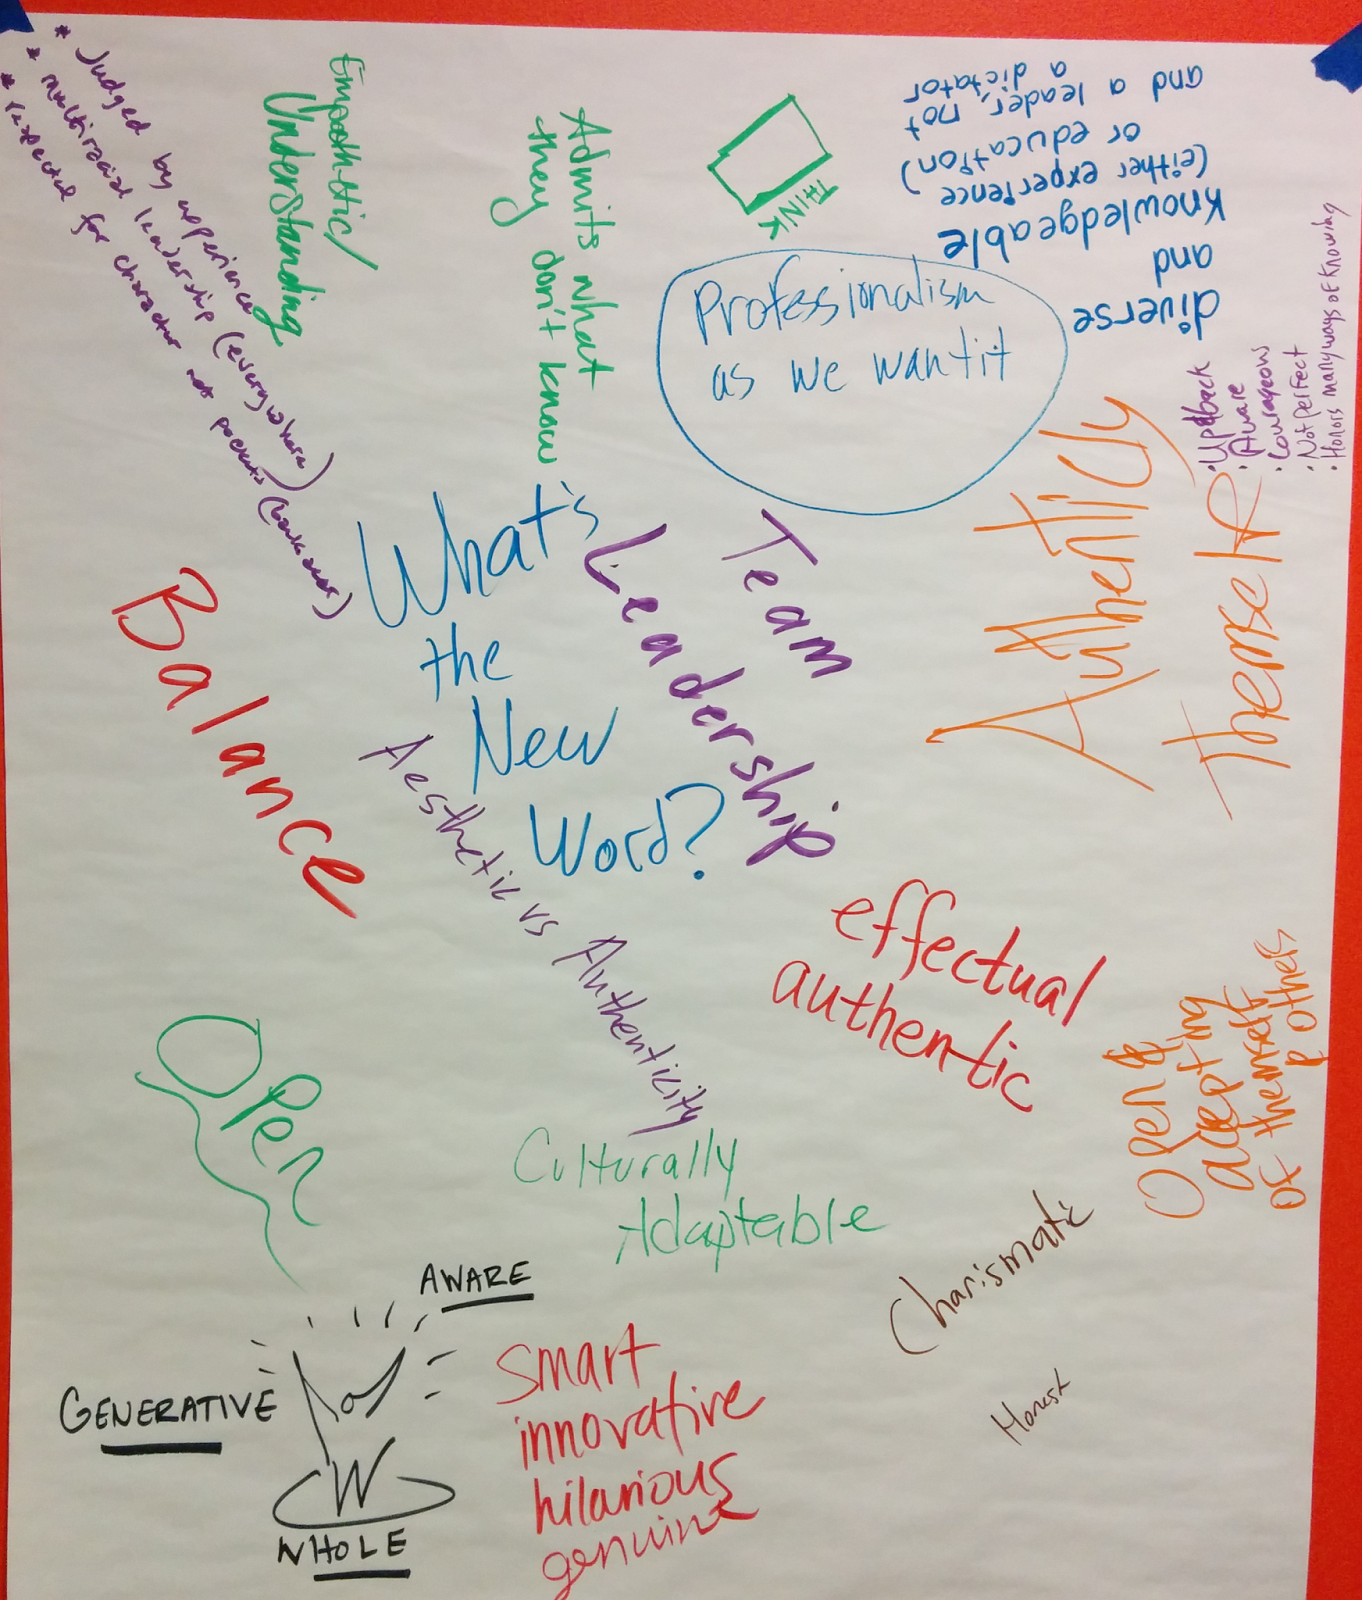 * Judged by experience
* multiracial leadership (everywhere)
* respected for character not pockets (bank acct)
Empathetic/
Understanding
Admits what
they don't know
THINK
diverse
and
knowledgeable
(either experience
or education)
and a leader, not
a dictator
Professionalism
as we want it
• Upfront
• Aware
• Courageous
• Not perfect
• Honors many ways of knowing
Authenticly
Themself
What's
the
New
Word?
Team
Leadership
Balance
Aesthetic vs Authenticity
effectual
authentic
Open &
accepting
of themselfs
& others
Open
Culturally
Adaptable
Charismatic
Honest
AWARE
GENERATIVE
W
WHOLE
Smart
innovative
hilarious
genuine